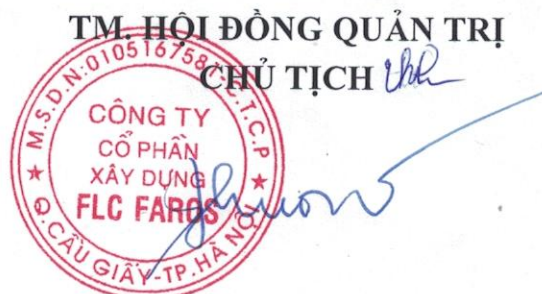 TM. HỘI ĐỒNG QUẢN TRỊ
CHỦ TỊCH
M.S.D.N:0105167581-C.T.C.P
CÔNG TY
CỔ PHẦN
XÂY DỰNG
FLC FAROS
Q.CẦU GIẤY-TP.HÀ NỘI